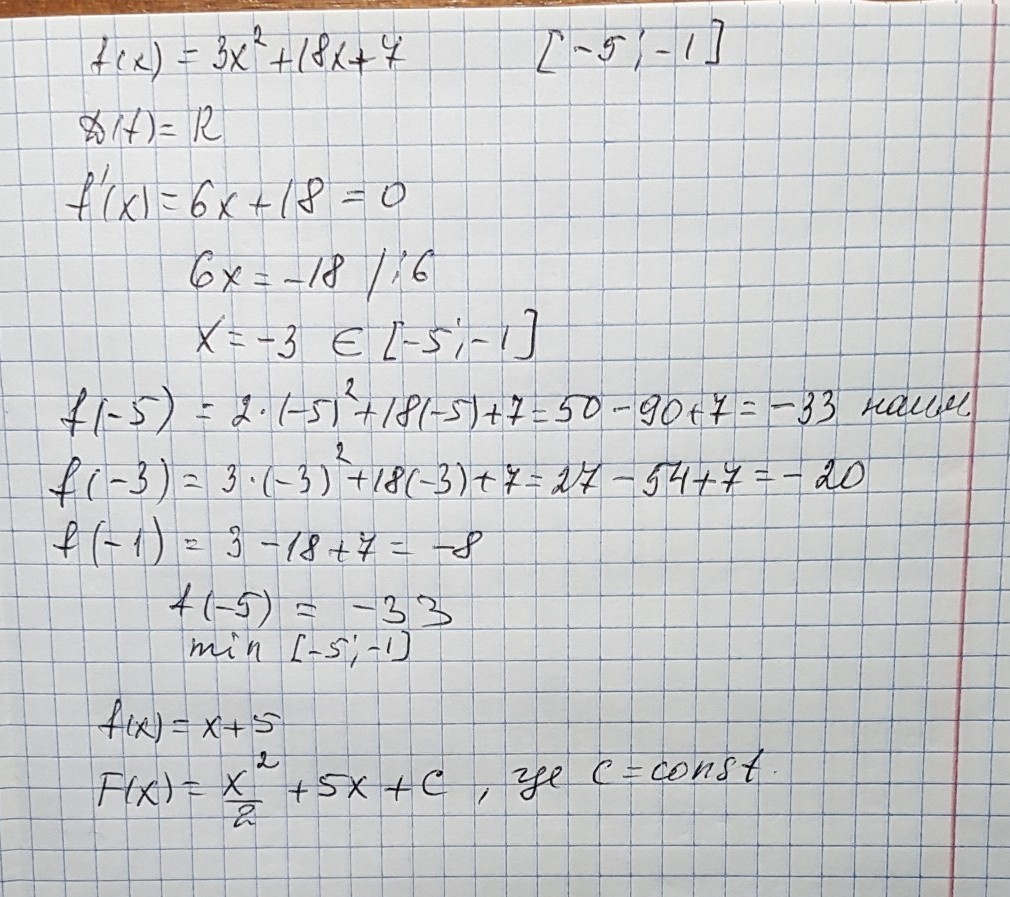 f(x) = 3x² + 18x + 7 [-5; -1]
D(f) = R
f'(x) = 6x + 18 = 0
6x = -18 / :6
x = -3 ∈ [-5; -1]
f(-5) = 2·(-5)² + 18(-5) + 7 = 50 - 90 + 7 = -33 наим
f(-3) = 3·(-3)² + 18(-3) + 7 = 27 - 54 + 7 = -20
f(-1) = 3 - 18 + 7 = -8
f(-5) = -33
min [-5; -1]
f(x) = x + 5
F(x) = x²/2 + 5x + C, где C = const.